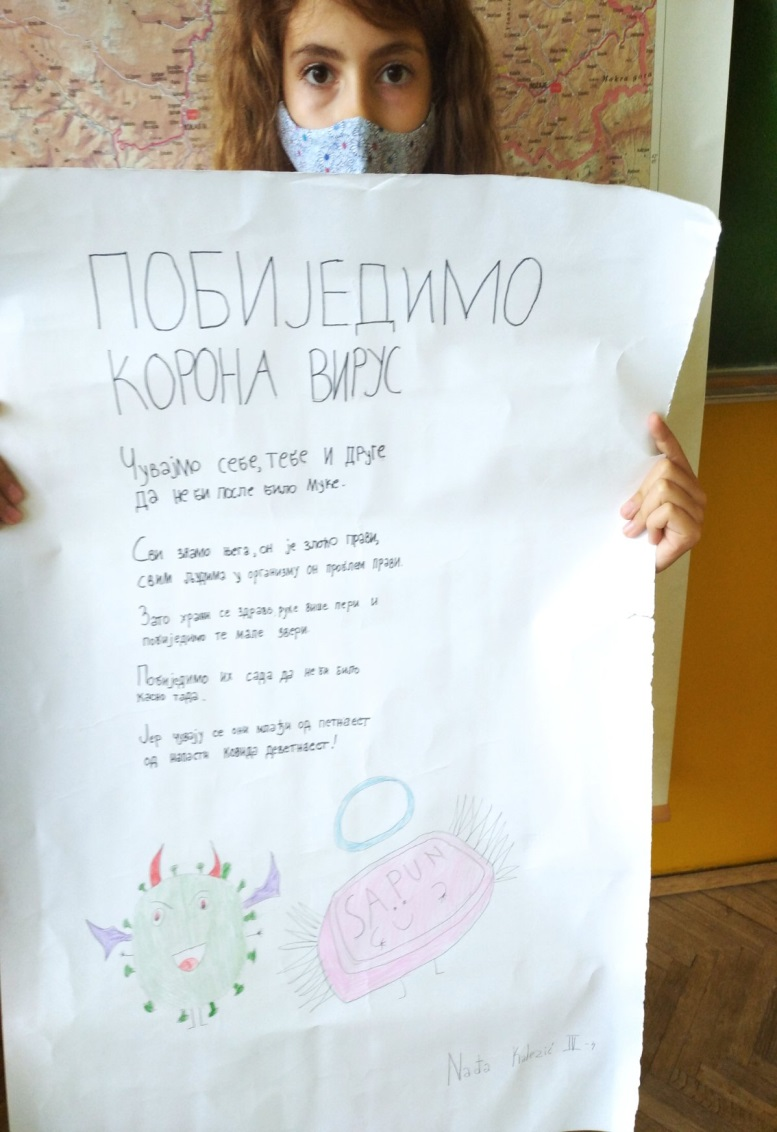 ПОБИЈЕДИМО
КОРОНА ВИРУС
Чувајмо себе, тебе и друге
да не би после било муке.
Сви знамо њега, он је злоћо прави,
свим људима у организму он проблем прави.
Зато храни се здраво, руке више пери и
побиједимо те мале звери.
Побиједимо их сада да не би било
касно тада.
Јер чувају се они млађи од петнаест
од напасти Ковида деветнаест!
SAPUN
Nađa
IV-